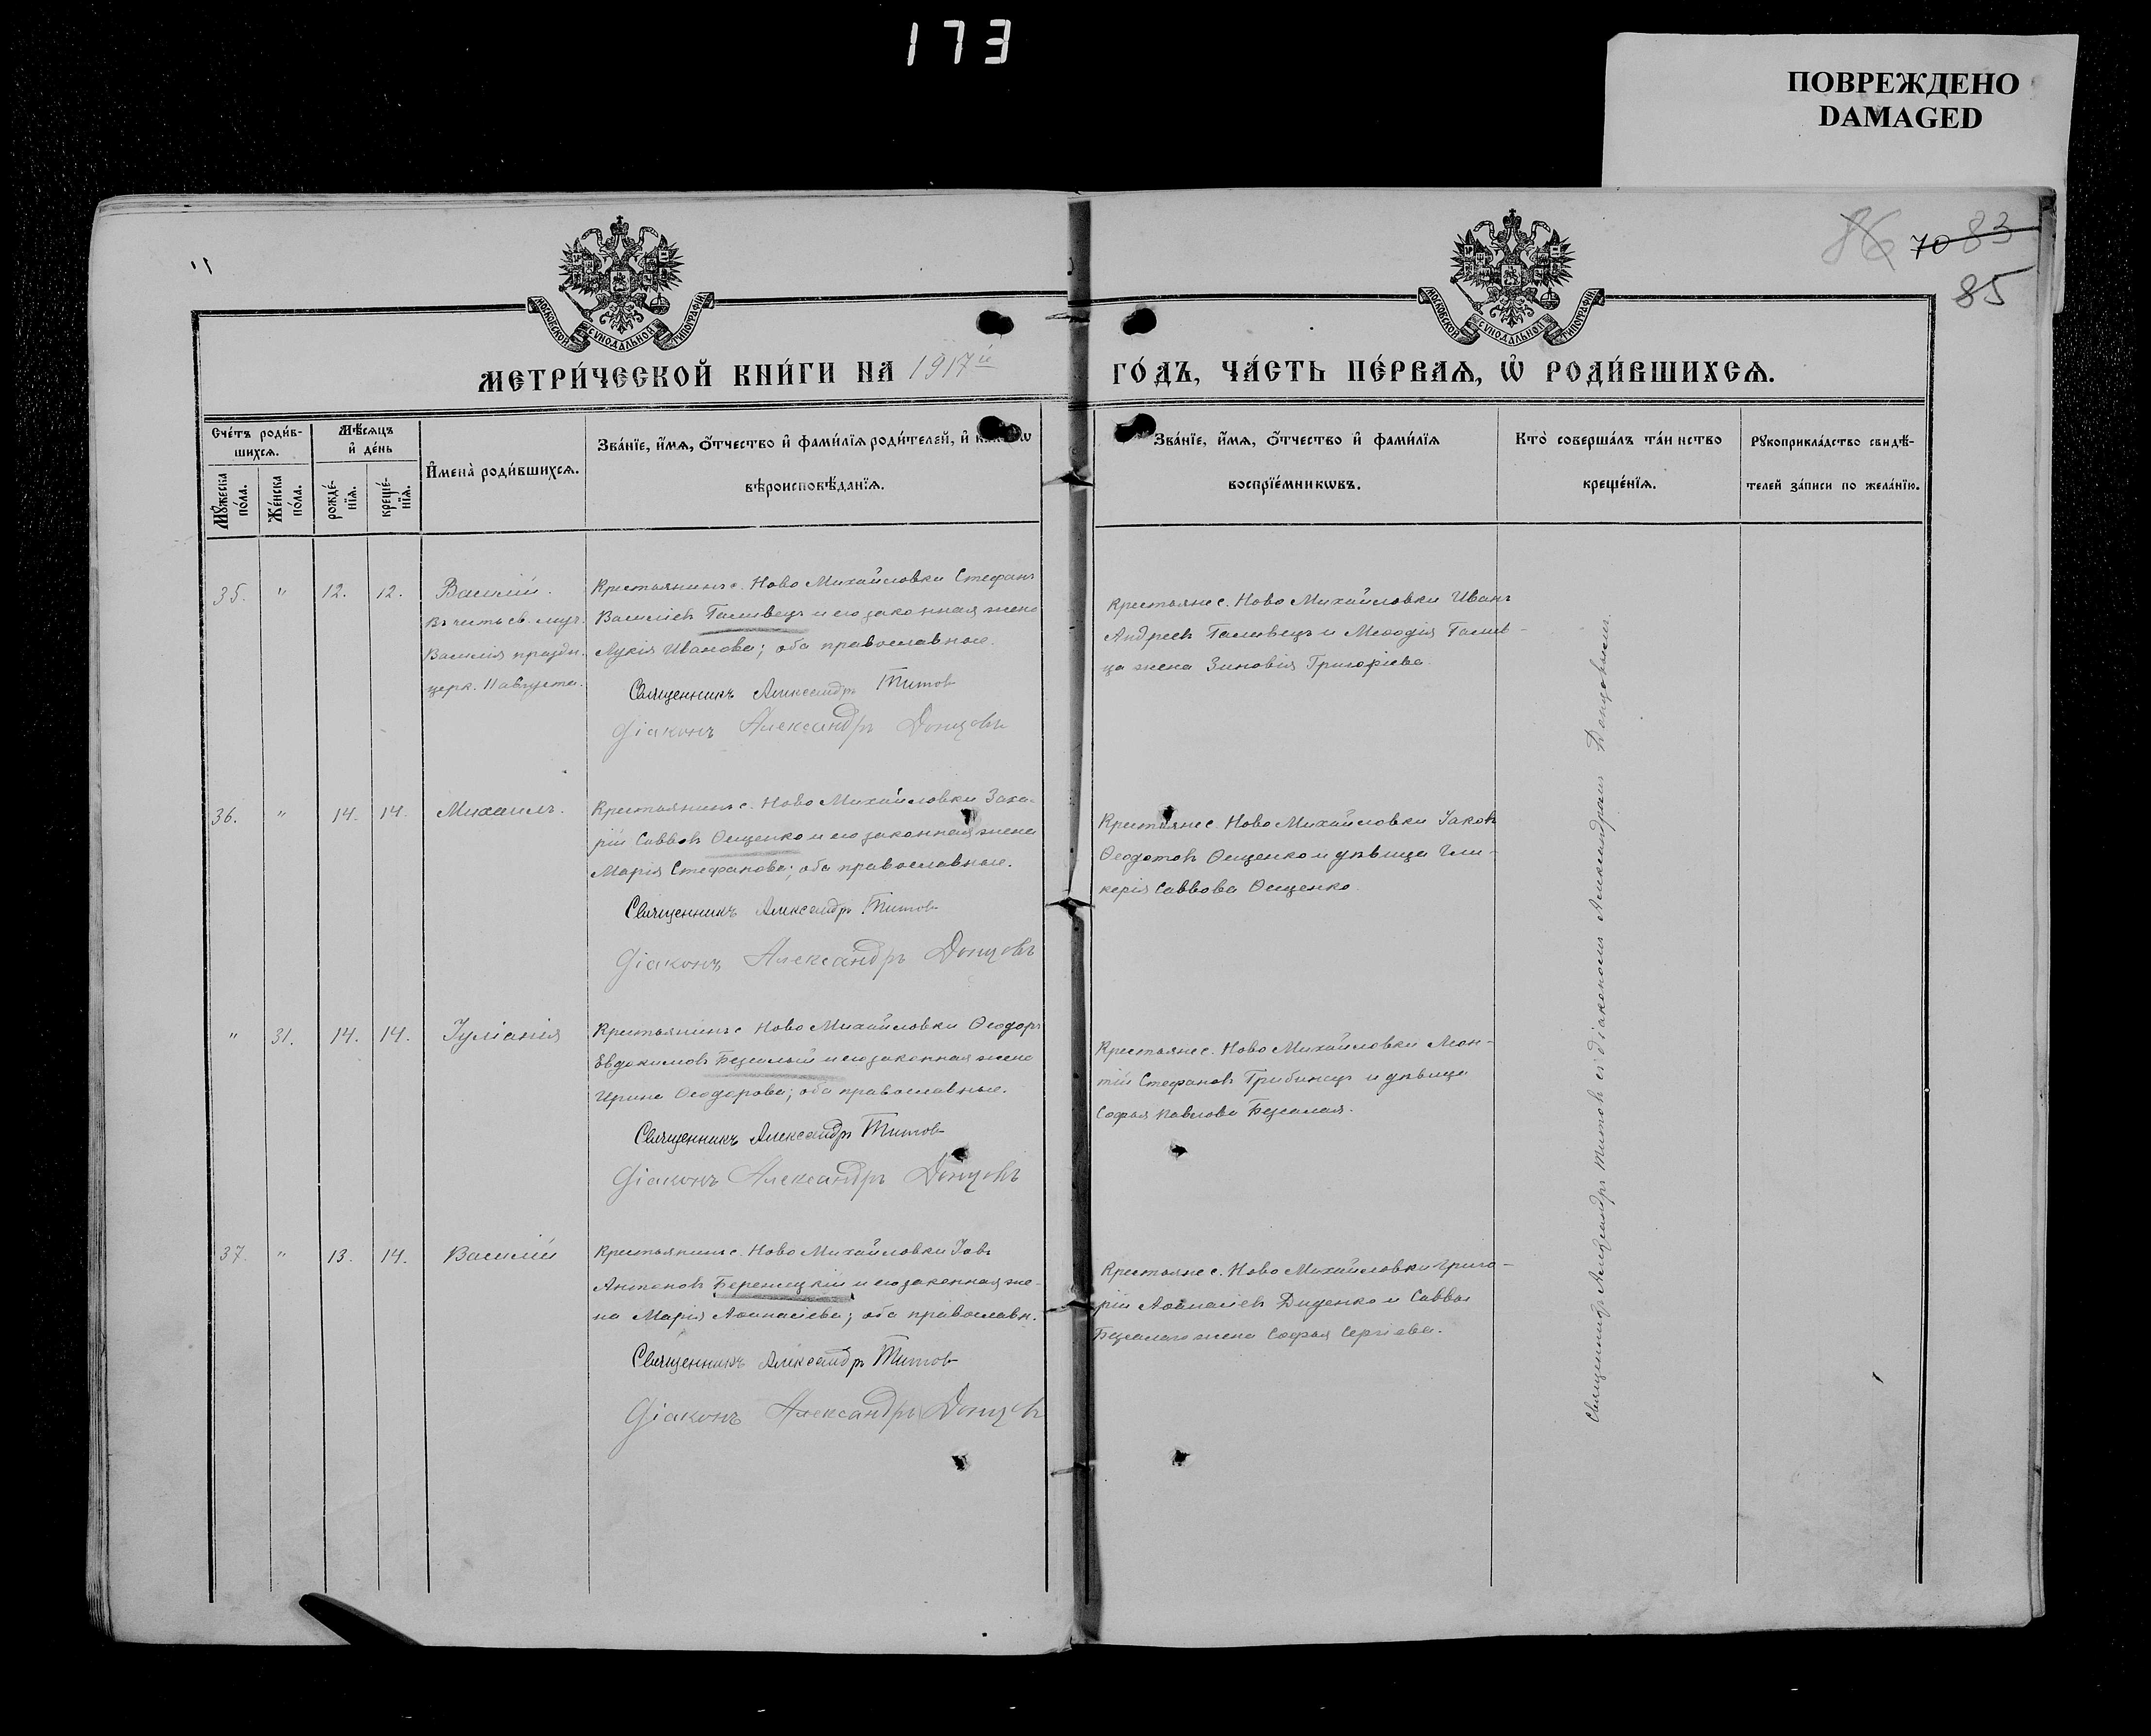 173
ПОВРЕЖДЕНО
DAMAGED
86 70 83
85
МОСКОВСКОЙ СѴНОДАЛЬНОЙ ТИПОГРАФІИ
МОСКОВСКОЙ СѴНОДАЛЬНОЙ ТИПОГРАФІИ
МЕТРИ́ЧЕСКОЙ КНИ́ГИ НА 1917й
ГО́ДЪ, ЧА́СТЬ ПЕ́РВАѦ, Ѡ҆ РОДИ́ВШИХСѦ.
Сче́тъ роди́в-
шихсѧ.
Мꙋ́жеска по́ла.
Же́нска по́ла.
Мѣ́сѧцъ
и҆ де́нь
рожде́-нїѧ.
креще́-нїѧ.
И҆мена̀ роди́вшихсѧ.
Зва́нїе, и҆́мѧ, ѻ҆́тчество и҆ фами́лїѧ роди́телей, и҆
вѣроисповѣ́данїѧ.
Зва́нїе, и҆́мѧ, ѻ҆́тчество и҆ фами́лїѧ
воспрїе́мникѡвъ.
Кто̀ соверша́лъ та́инство
креще́нїѧ.
Рꙋкоприкла́дство свидѣ́-
телей за́писи по жела́нїю.
35. " 12. 12. Василій.
Въ честь св. муч.
Василія праздн.
церк. 11 августа.
Крестьянинъ с. Ново Михайловки Стефанъ
Васильевъ Галивецъ и его законная жена
Лукія Иванова; оба православные.
Священникъ Александръ Титовъ
Діаконъ Александръ Донцовъ
Крестьяне с. Ново Михайловки Иванъ
Андреевъ Галивецъ и Меѳодія Галив-
ца жена Зиновія Григоріева.
36. " 14. 14. Михаилъ.
Крестьянинъ с. Ново Михайловки Заха-
рій Савовъ Ѳещенко и его законная жена
Марія Стефанова; оба православные.
Священникъ Александръ Титовъ
Діаконъ Александръ Донцовъ
Крестьяне с. Ново Михайловки Іаковъ
Ѳеодотовъ Ѳещенко и дѣвица Гли-
керія Саввова Ѳещенко.
" 31. 14. 14. Іуліанія
Крестьянинъ с. Ново Михайловки Ѳеодоръ
Евдокимовъ Безсалый и его законная жена
Ирина Ѳеодорова; оба православные.
Священникъ Александръ Титовъ
Діаконъ Александръ Донцовъ
Крестьяне с. Ново Михайловки Леон-
тій Стефановъ Грибинецъ и дѣвица
Софья Павлова Безсалая.
37. " 13. 14. Василій
Крестьянинъ с. Ново Михайловки Іовъ
Антоновъ Беренецкій и его законная же-
на Марія Аѳанасіева; оба православн.
Священникъ Александръ Титовъ
Діаконъ Александръ Донцовъ
Крестьяне с. Ново Михайловки Григо-
рій Аѳанасіевъ Диденко и Саввы
Безсалаго жена Софья Сергіева.
Священникъ Александръ Титовъ съ діакономъ Александромъ Донцовымъ.